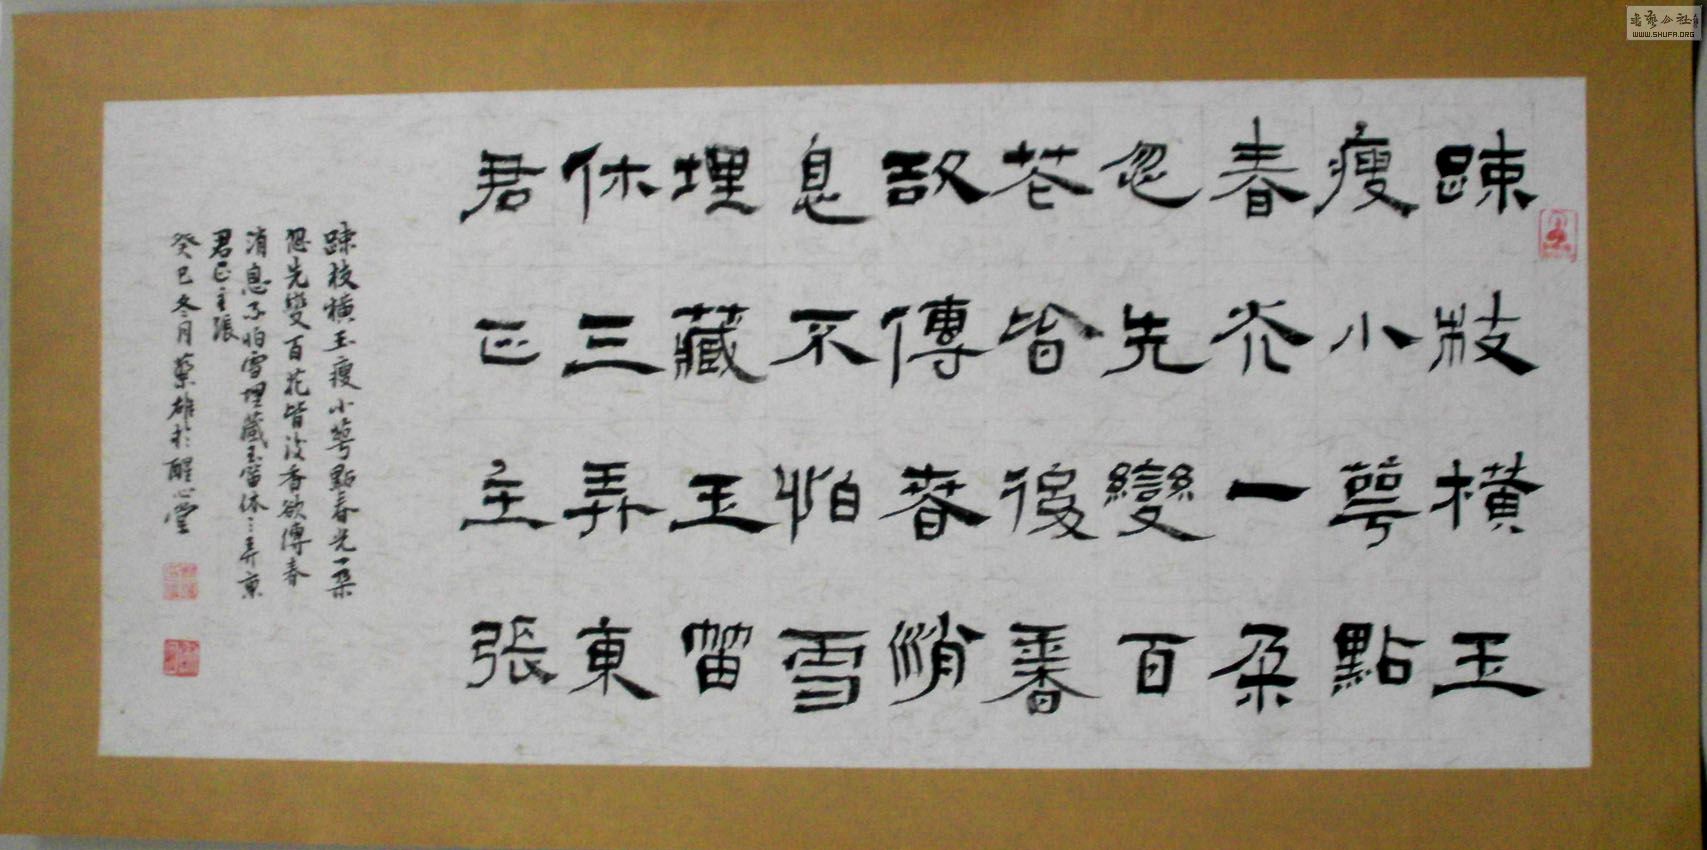 踈枝橫玉
瘦小萼點
春光一朵
忽先變百
花皆後香
欲傳春消
息不怕雪
埋藏玉笛
休三弄東
君正主張
踈枝橫玉瘦小萼點春光一朵
忽先變百花皆後香欲傳春
消息不怕雪埋藏玉笛休三弄東
君正主張
癸巳冬月蔡雄於醒心堂
书艺公社
WWW.SHUFA.ORG